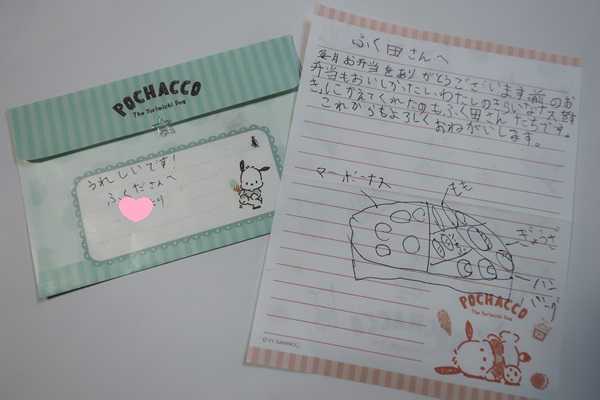 POCHACCO
The Tortoichi Dog
うれしいです!
ふくださんへ
より
ふく田さんへ
毎月お弁当をありがとうございます前のお
弁当もおいしかたいわたしのきらいなナスを好
きにかえてくれたのもふく田さんたちです。
これからもよろしくおねがいします。
マーボーナス
ぎょうざ
ハン
バーグ
POCHACCO